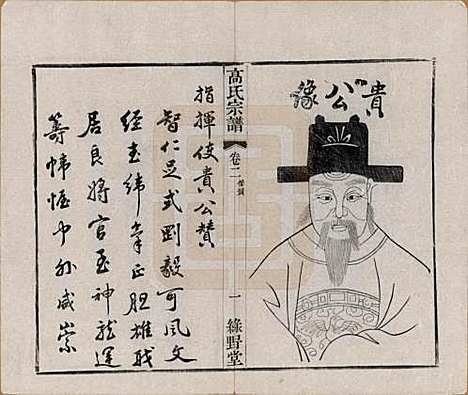 貴公像
高氏宗譜
卷二
一
綠野堂
指揮使貴公贊
智仁足式剛毅可風文
經武緯氣正胆雄職
居良將官至神龍運
籌幃幄中外咸崇